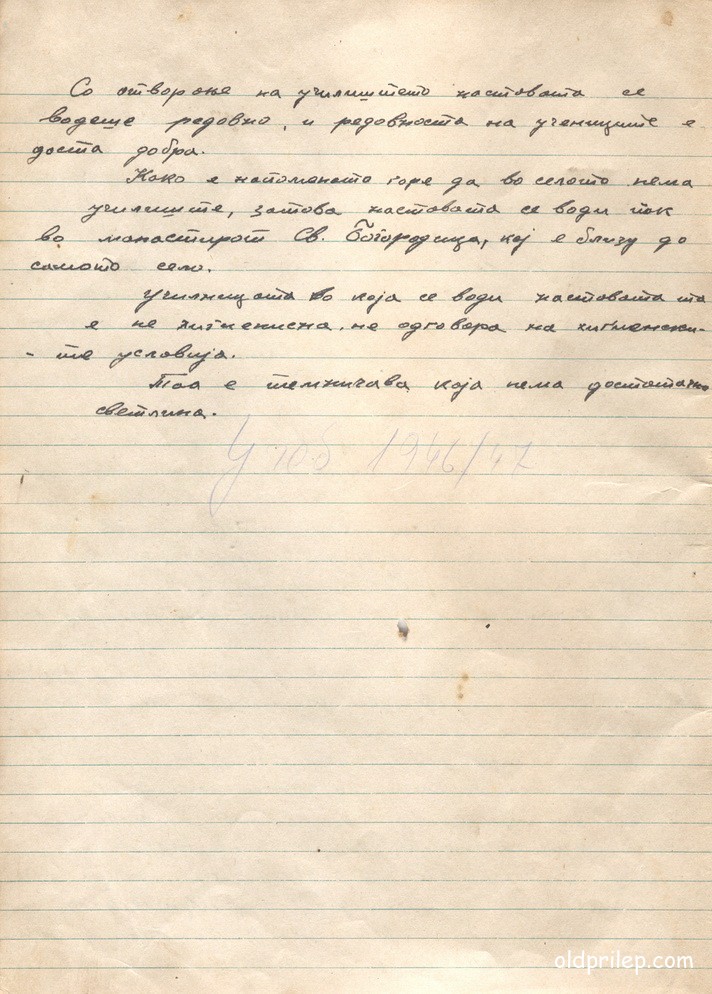 Со отворање на училиштето наставата се
водеше редовно, и редовноста на учениците е
доста добра.
Како е напоменато горе да во селото нема
училиште, затова наставата се води пок
во манастирот Св. Богородица, кој е близу до
самото село.
Училницата во која се води наставата та
е не хигиенисна. не одговора на хигиенски-
- те условија.
Таа е темничава која нема достаточно
светлина.
1946/47
oldprilep.com